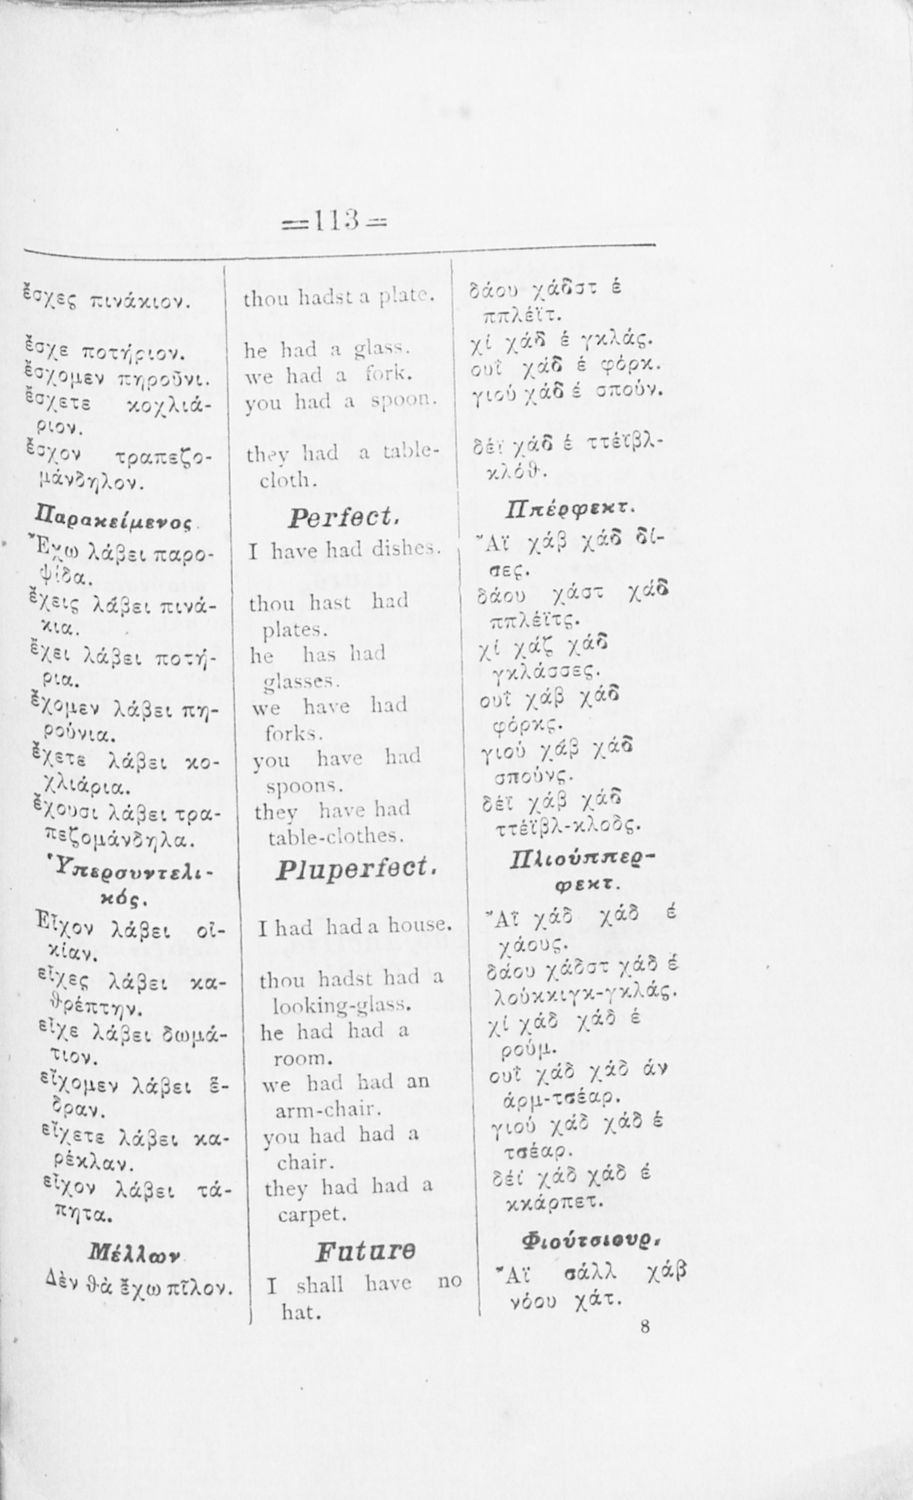 =113=
ἔσχες πινάκιον.
ἔσχε ποτήριον.
ἔσχομεν πηροῦνι.
ἔσχετε κοχλιά-
ριον.
ἔσχον τραπεζο-
μάνδηλον.
Παρακείμενος
Ἔχω λάβει παρο-
ψίδα.
ἔχεις λάβει πινά-
κια.
ἔχει λάβει ποτή-
ρια.
ἔχομεν λάβει πη-
ρούνια.
ἔχετε λάβει κο-
χλιάρια.
ἔχουσι λάβει τρα-
πεζομάνδηλα.
Ὑπερσυντελι-
κός.
Εἶχον λάβει οἰ-
κίαν.
εἶχες λάβει κα-
θρέπτην.
εἶχε λάβει δωμά-
τιον.
εἴχομεν λάβει ἕ-
δραν.
εἴχετε λάβει κα-
ρέκλαν.
εἶχον λάβει τά-
πητα.
Μέλλων
Δὲν θὰ ἔχω πῖλον.
thou hadst a plate.
he had a glass.
we had a fork.
you had a spoon.
they had a table-
cloth.
Perfect.
I have had dishes.
thou hast had
plates.
he has had
glasses.
we have had
forks.
you have had
spoons.
they have had
table-clothes.
Pluperfect.
I had had a house.
thou hadst had a
looking-glass.
he had had a
room.
we had had an
arm-chair.
you had had a
chair.
they had had a
carpet.
Future
I shall have no
hat.
δάου χάδστ έ
ππλέϊτ.
χί χάδ έ γκλάς.
ουΐ χάδ έ φόρκ.
γιού χάδ έ σπούν.
δέϊ χάδ έ ττέϊβλ-
κλόθ.
Ππέρφεκτ.
Ἄϊ χάβ χάδ δί-
σες.
δάου χάστ χάδ
ππλέϊτς.
χί χάζ χάδ
γκλάσσες.
ουΐ χάβ χάδ
φόρκς.
γιού χάβ χάδ
σπούνς.
δέϊ χάβ χάδ
ττέϊβλ-κλοδς.
Πλιούππερ-
φεκτ.
Ἄϊ χάδ χάδ έ
χάους.
δάου χάδστ χάδ έ
λούκκιγκ-γκλάς.
χί χάδ χάδ έ
ρούμ.
ουΐ χάδ χάδ άν
άρμ-τσέαρ.
γιού χάδ χάδ έ
τσέαρ.
δέϊ χάδ χάδ έ
κκάρπετ.
Φιούτσιουρ.
Ἄϊ σάλλ χάβ
νόου χάτ.
8